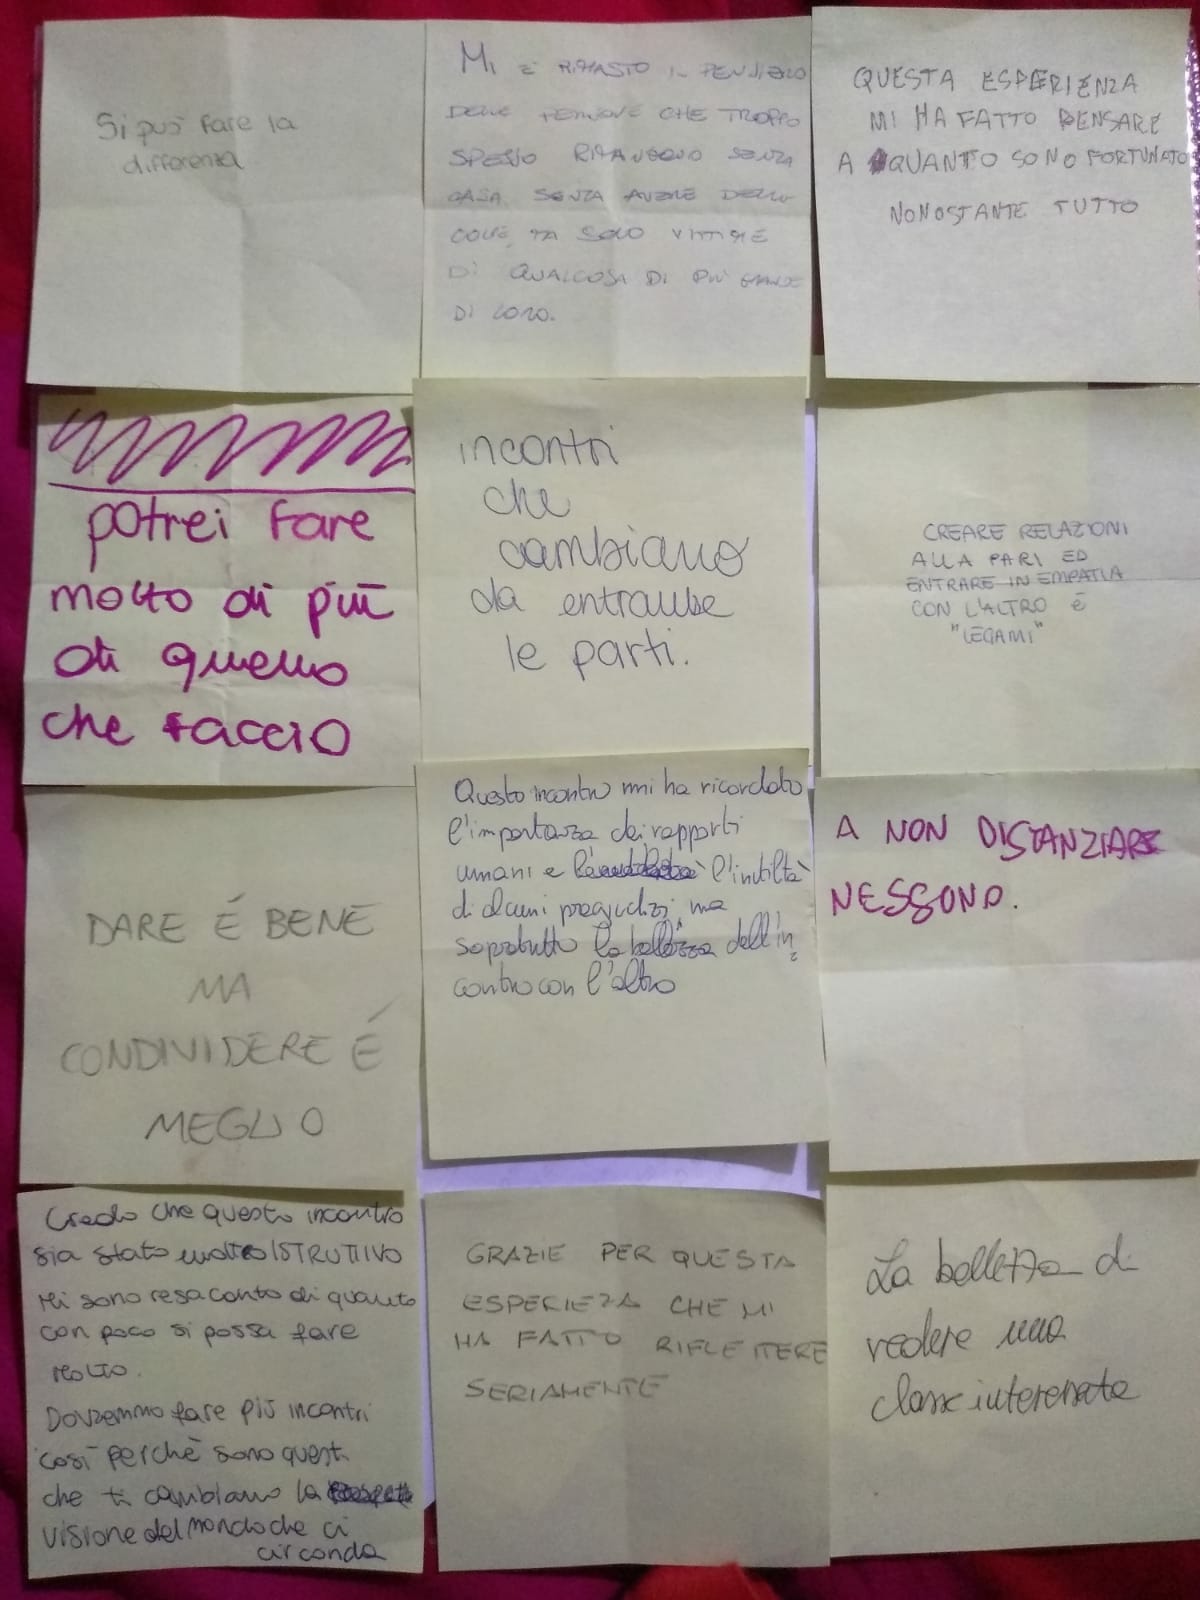 Si può fare la
differenza
MI È RIMASTO IL PENSIERO
DELLE PERSONE CHE TROPPO
SPESSO RIMANGONO SENZA
CASA, SENZA AVERE DELLE
COLPE, MA SOLO VITTIME
DI QUALCOSA DI PIÙ GRANDE
DI LORO.
QUESTA ESPERIENZA
MI HA FATTO PENSARE
A QUANTO SONO FORTUNATO
NONOSTANTE TUTTO
potrei fare
molto di più
di quello
che faccio
incontri
che
cambiano
da entrambe
le parti.
CREARE RELAZIONI
ALLA PARI ED
ENTRARE IN EMPATIA
CON L'ALTRO È
"LEGAMI"
DARE É BENE
MA
CONDIVIDERE É
MEGLIO
Questo incontro mi ha ricordato
l'importanza dei rapporti
umani e l'inutiltà
di alcuni pregiudizi, ma
sopratutto la bellezza dell'in
contro con l'altro
A NON DISTANZIARE
NESSUNO.
Credo che questo incontro
sia stato molto ISTRUTTIVO
Mi sono resa conto di quanto
con poco si possa fare
molto.
Dovremmo fare più incontri
così perchè sono questi
che ti cambiano la
visione del mondo che ci
circonda
GRAZIE PER QUESTA
ESPERIEZA CHE MI
HA FATTO RIFLETTERE
SERIAMENTE
La bellezza di
vedere una
classe interessata